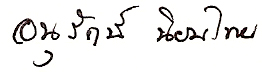 อนุรักษ์ นิยมไทย